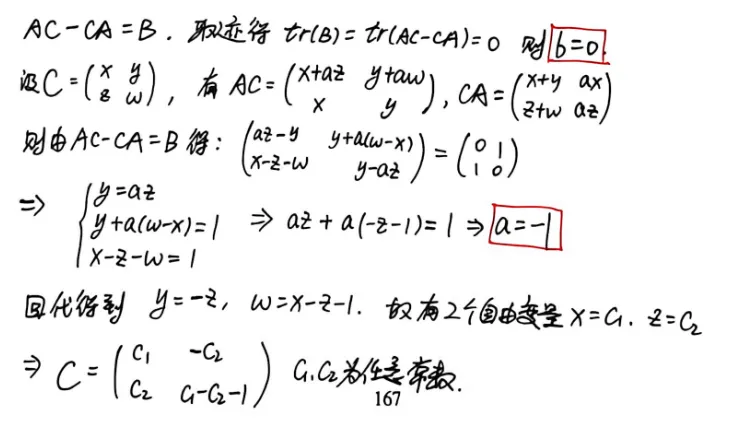 AC-CA=B. 取迹得 tr(B)=tr(AC-CA)=0 则 b=0.
设C=(x y; z w), 有 AC=(x+az y+aw; x y), CA=(x+y ax; z+w az)
则由AC-CA=B得: (az-y y+a(w-x); x-z-w y-az)=(0 1; 1 0)
⇒ { y=az
y+a(w-x)=1 ⇒ az+a(-z-1)=1 ⇒ a=-1
x-z-w=1
回代得到 y=-z, w=x-z-1. 故有2个自由变量 x=C₁. z=C₂
⇒ C=(C₁ -C₂; C₂ C₁-C₂-1) C₁.C₂为任意常数.
167